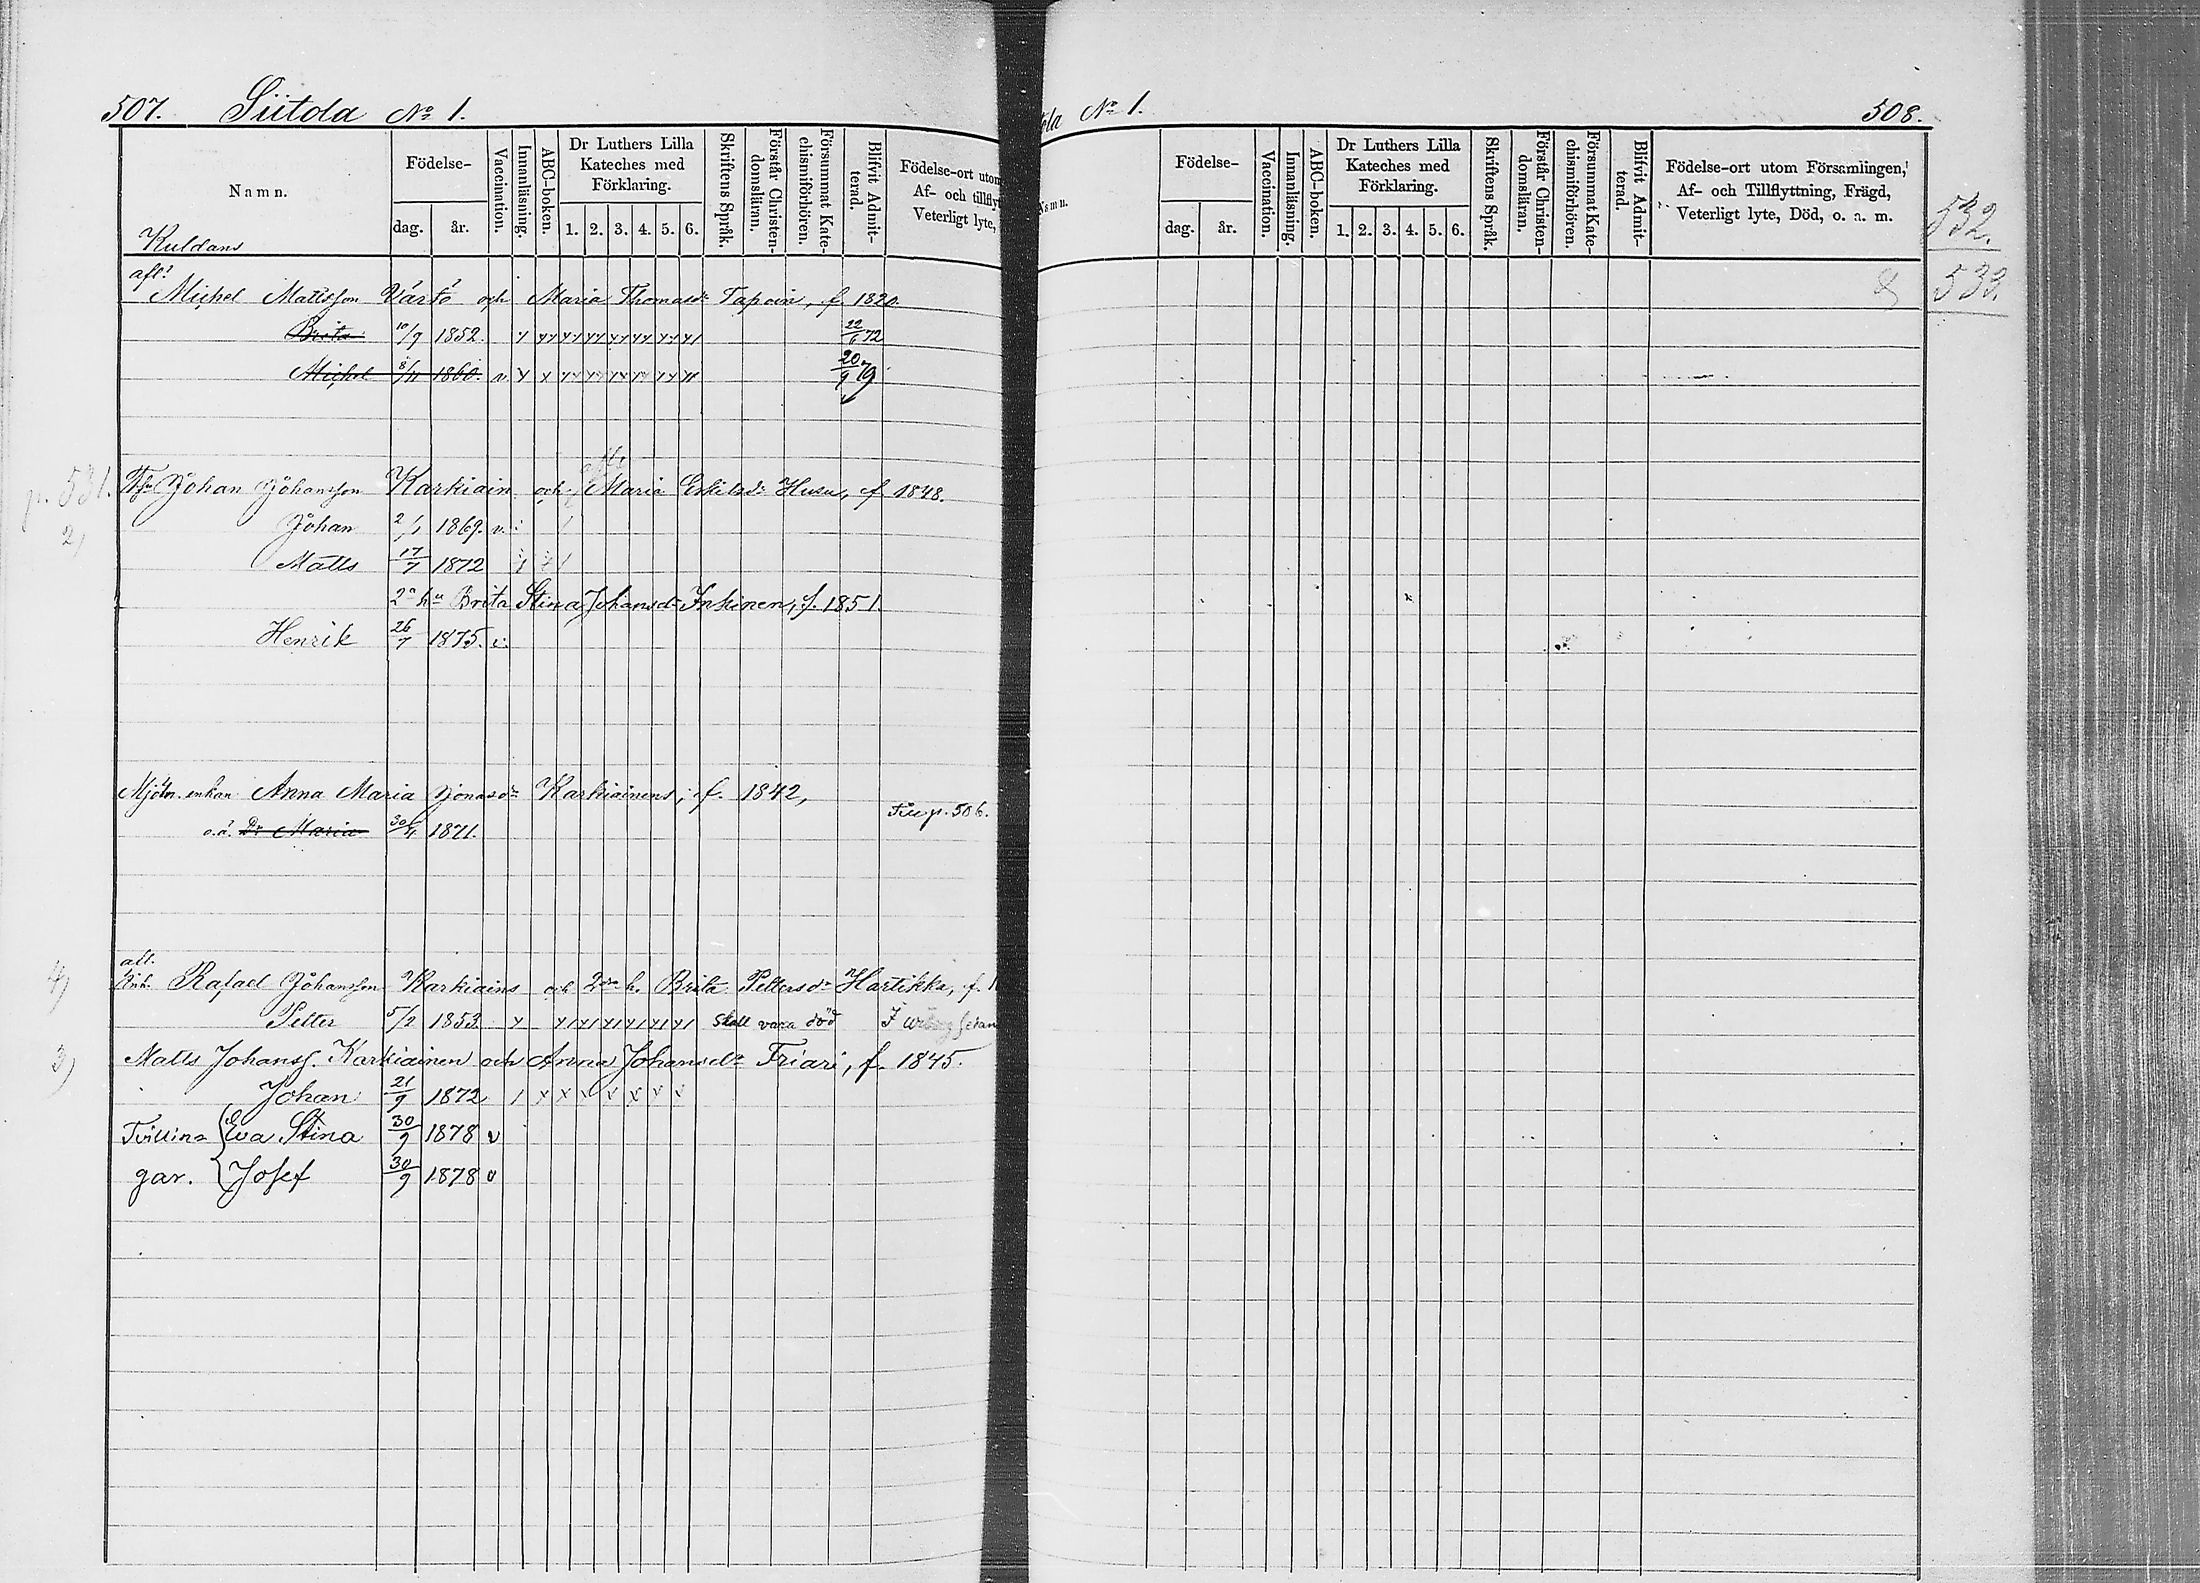 507. Siitola No 1.
Namn.
Födelse-
dag. år.
Vaccination.
Innanläsning.
ABC-boken.
Dr Luthers Lilla
Kateches med
Förklaring.
1. 2. 3. 4. 5. 6.
Skriftens Språk.
Förstår Christen-
domsläran.
Försummat Kate-
chismiförhören.
Blifvit Admit-
terad.
Födelse-ort utom
Af- och tillfly
Veterligt lyte,
Kuldans
afl.
Michel Mattsson Värtö och Maria Thomasdr Tapoin, f. 1820.
Brita 10/9 1852. 22/6 72
Michel 8/11 1860. v 20/9 79
p. 531.
Johan Johansson Karkiain och Maria Eskilsdr Husu, f 1848.
2)
Johan 2/1 1869. v.
Matts 17/7 1872
2a hu Brita Stina Johansdr Inkinen, f. 1851
Henrik 26/7 1875.
Mjöln. enkan Anna Maria Jonasdr Karkiainens, f. 1842,
o.ä. Dr Maria 30/4 1871.
Till p. 506.
4)
Inh. Rafael Johansson Karkiains och 2dra h. Brita Pettersdr Hartikka, f. 1
Petter 5/2 1853 skall vara död
3)
Matts Johanss. Karkiainen och Anna Johansdr Friari, f. 1845.
Johan 21/9 1872
Tvillin- Eva Stina 30/9 1878 v
gar. Josef 30/9 1878 v
tola No 1. 508.
Namn.
Födelse-
dag. år.
Vaccination.
Innanläsning.
ABC-boken.
Dr Luthers Lilla
Kateches med
Förklaring.
1. 2. 3. 4. 5. 6.
Skriftens Språk.
Förstår Christen-
domsläran.
Försummat Kate-
chismiförhören.
Blifvit Admit-
terad.
Födelse-ort utom Församlingen,
Af- och Tillflyttning, Frägd,
Veterligt lyte, Död, o. a. m.
532.
533.